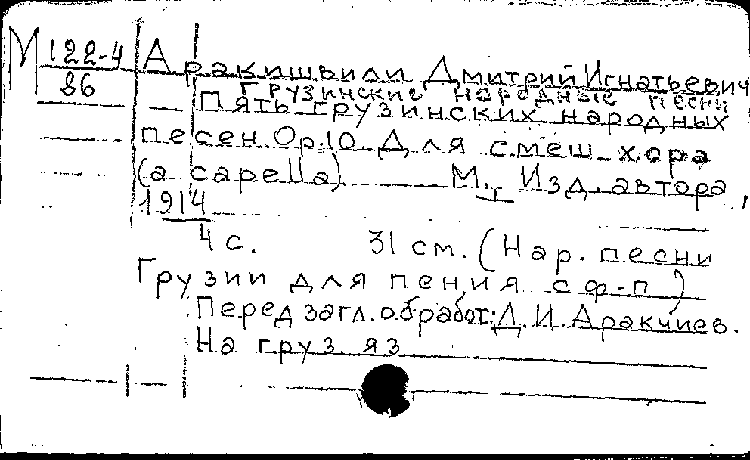 М 122-4
86
Аракишвили Дмитрий Игнатьевич
Грузинские народные песни
Пять грузинских народных
песен. Op.10 Для смеш. хора
(a capella) М., Изд. автора,
1914
4 с. 31 см. (Нар. песни
Грузии для пения с ф-п)
Перед загл. обработ: Д. И. Аракчиев.
На груз яз